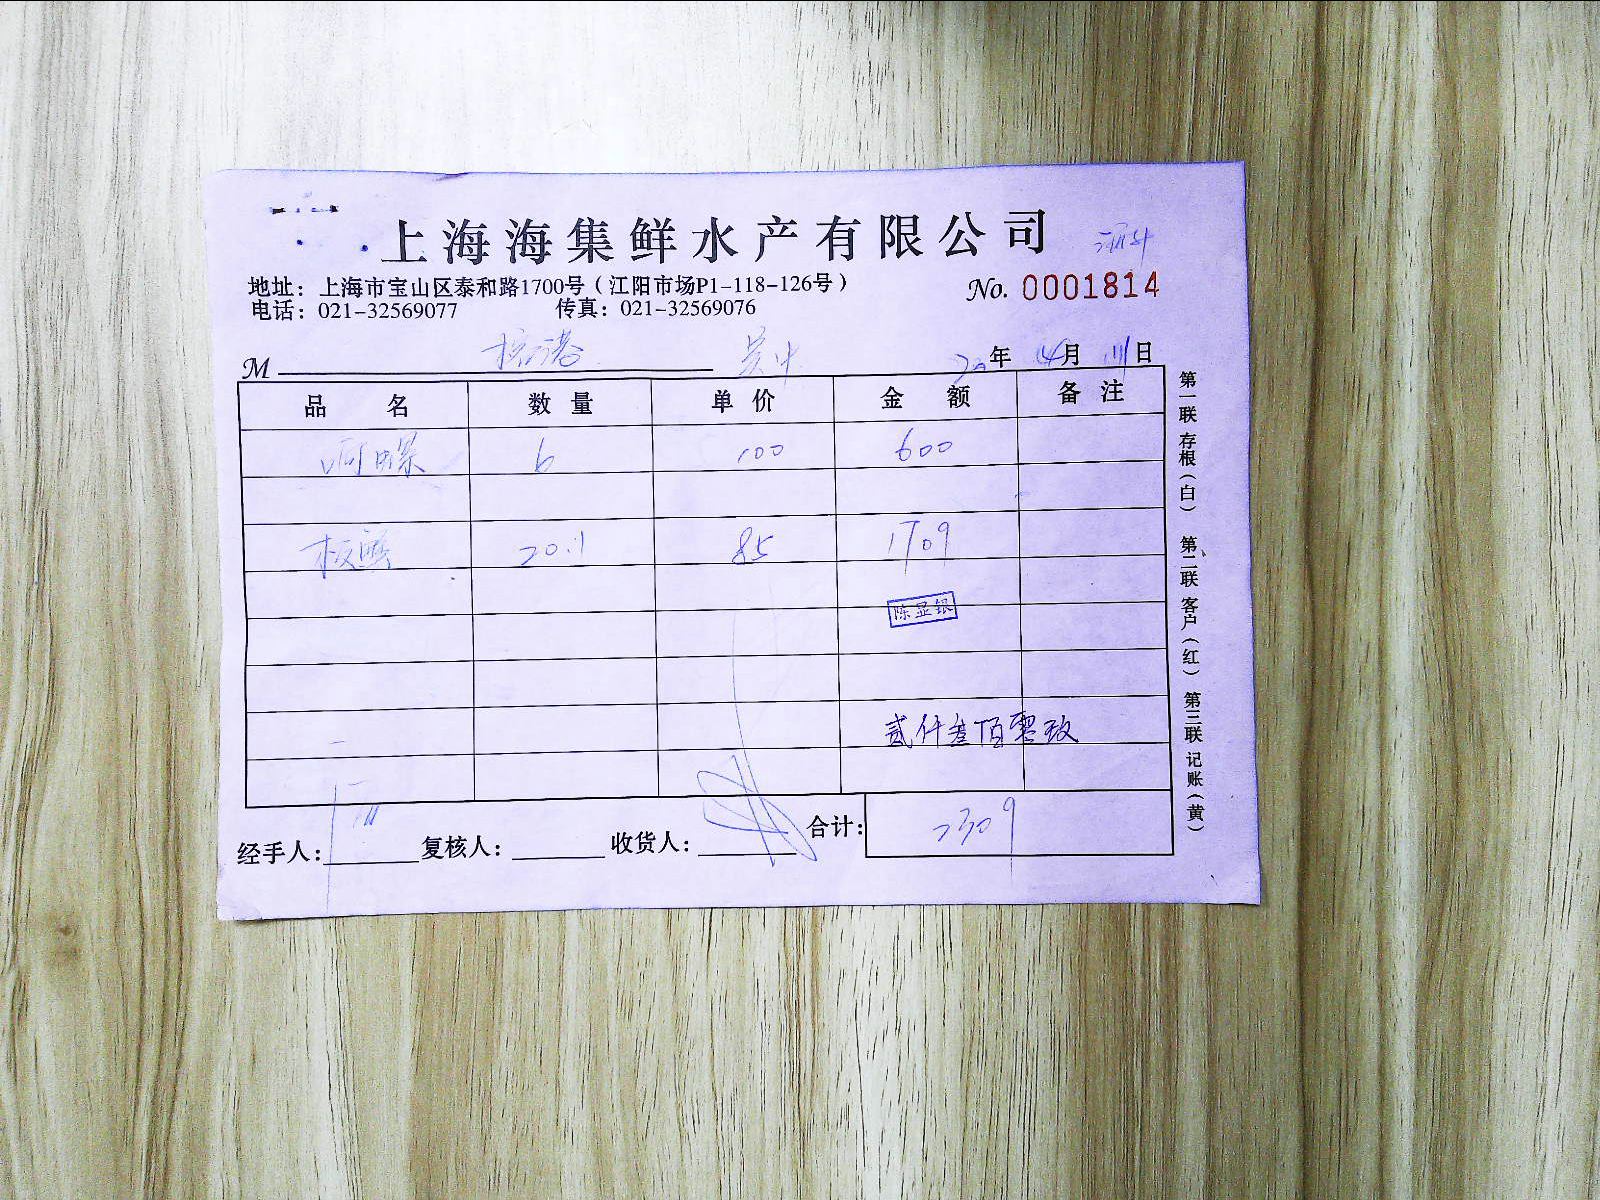 上海海集鲜水产有限公司
地址：上海市宝山区泰和路1700号（江阳市场P1-118-126号）
No. 0001814
电话：021-32569077 传真：021-32569076
M 年 4月 日
品 名 数 量 单 价 金 额 备 注
响螺 6 100 600
20.1 85 1709
陈显银
贰仟叁佰零玖
经手人： 复核人： 收货人： 合计： 2309
第一联 存根（白） 第二联 客户（红） 第三联 记账（黄）